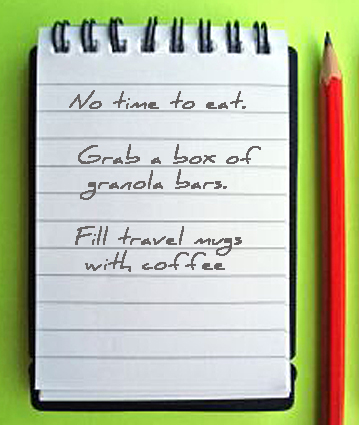 No time to eat.
Grab a box of
granola bars.
Fill travel mugs
with coffee